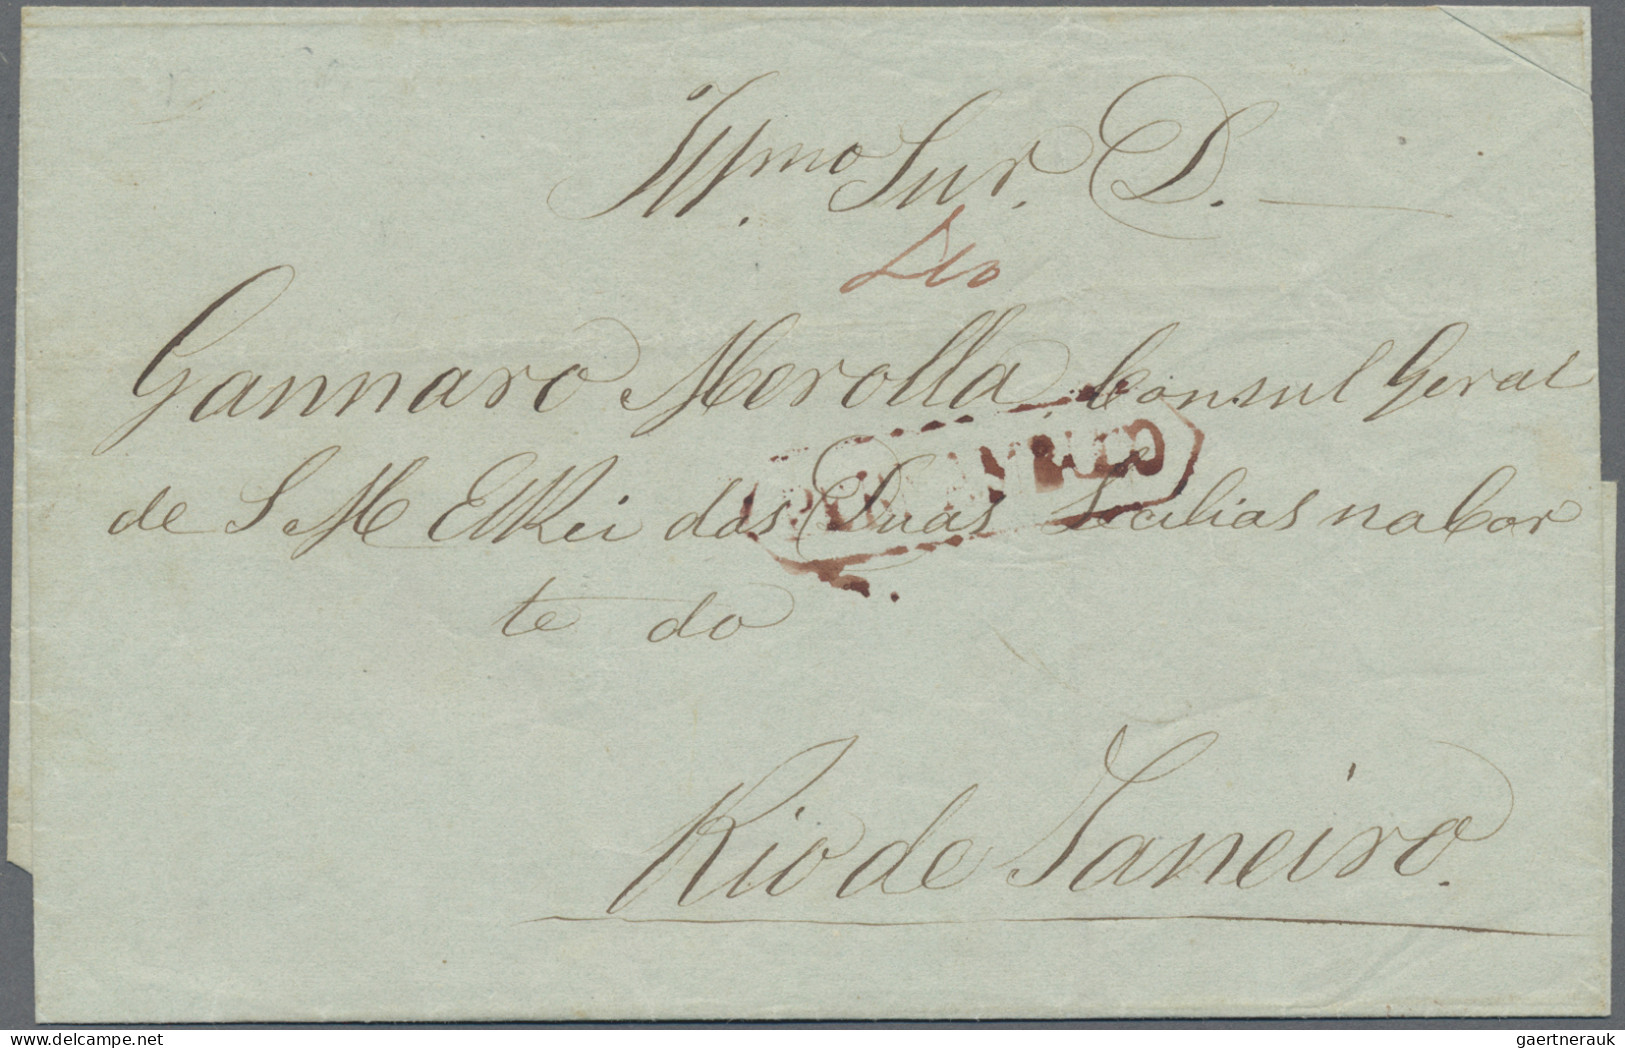 Illmo Snr. D.
Gannaro Merolla Consul Geral
de S M ElRei das Duas Secilias na Cor
te do
Rio de Janeiro.
gaertnerauk